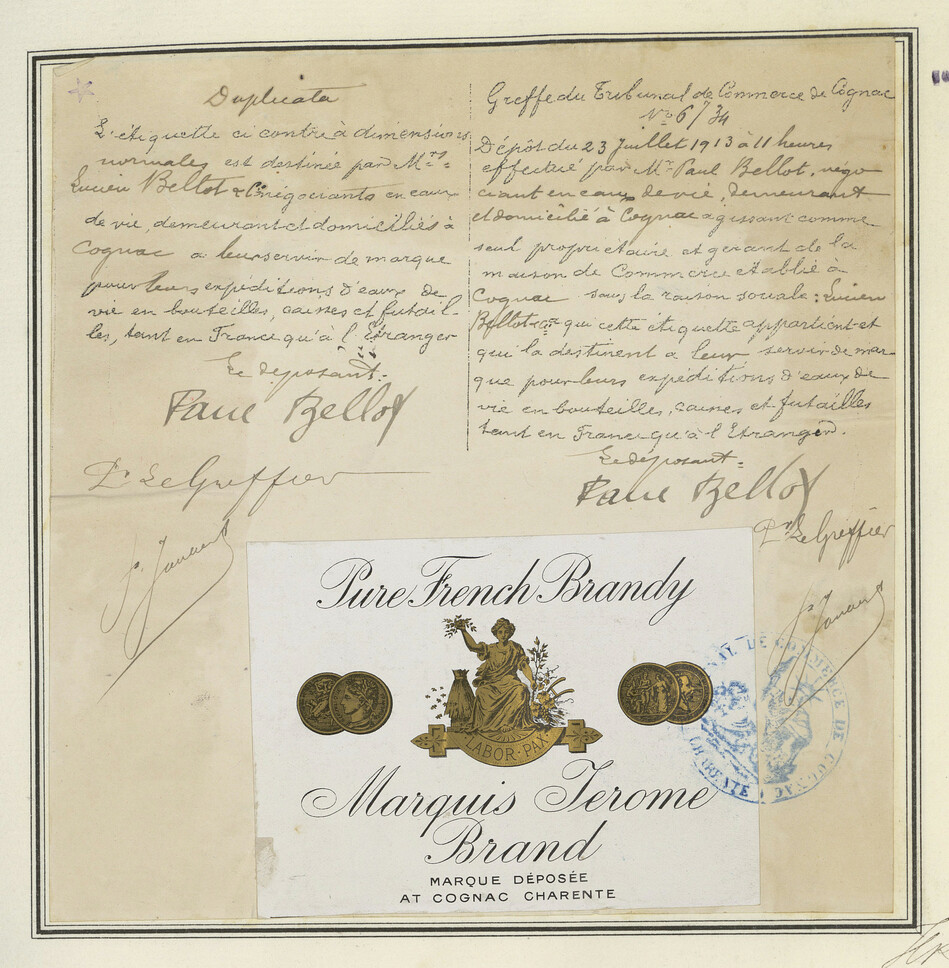 Duplicata
L'étiquette ci contre à dimensions
normales est destinée par M.rs
Lucien Bellot & Cie négociants en eaux
de vie, demeurant et domiciliés à
Cognac a leur servir de marque
pour leurs expéditions d'eaux de
vie en bouteilles, caisses et futail-
les, tant en France qu'à l'Etranger
Le déposant:
Paul Bellot
Pr Le Greffier
Greffe du Tribunal de Commerce de Cognac
No 6734
Dépôt du 23 Juillet 1913 à 11 heures
effectué par Mr Paul Bellot, négo
ciant en eaux de vie, demeurant
et domicilié à Cognac agissant comme
seul propriétaire et gérant de la
maison de Commerce établie à
Cognac sous la raison sociale: Lucien
Bellot & Cie qui cette étiquette appartient et
qui la destinent a leur servir de mar
que pour leurs expéditions d'eaux de
vie en bouteilles, caisses et futailles
tant en France qu'à l'Etranger.
Le déposant:
Paul Bellot
Pr Le Greffier
Pure French Brandy
LABOR·PAX
Marquis Jerome
Brand
MARQUE DÉPOSÉE
AT COGNAC CHARENTE
DE COMMERCE DE COGNAC
CHARENTE